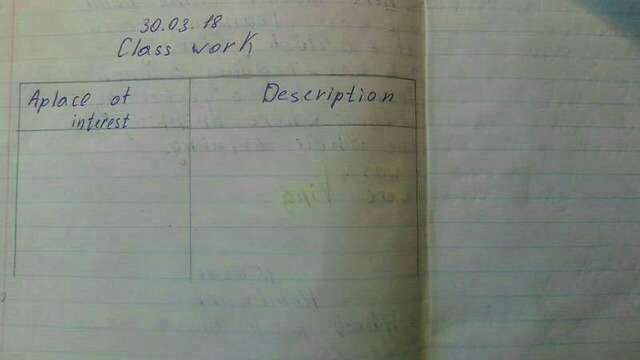 30.03.18
Class work
Aplace of
interest
Description